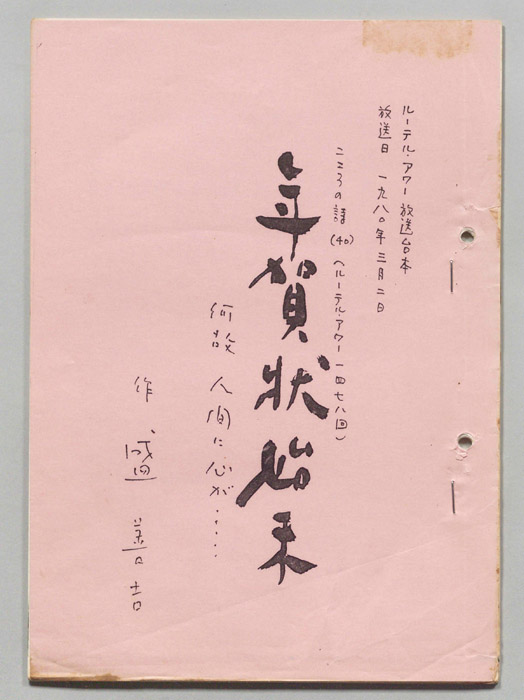 ルーテル・アワー放送台本
放送日 一九八〇年三月二日
こころの話 (40) (ルーテル・アワー 一四七八回)
年賀状始末
何故 人間に心が……
作 盛 善吉